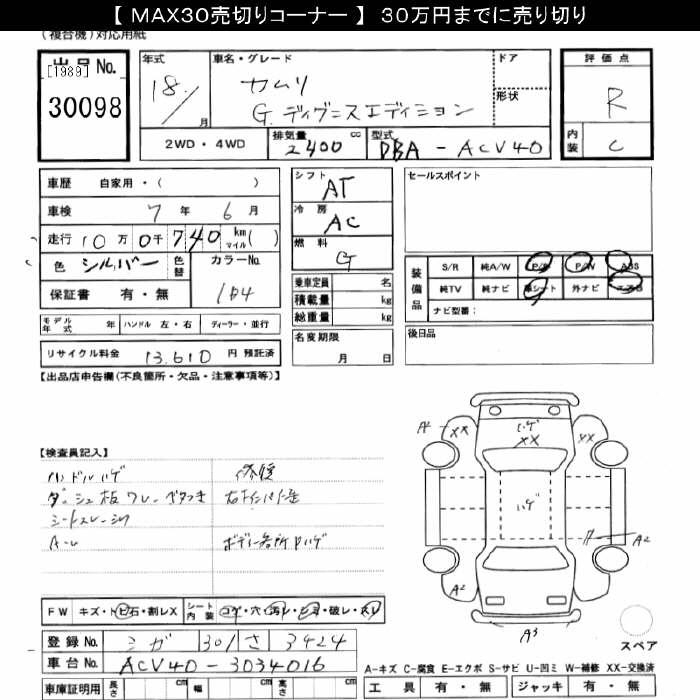 【 MAX30売切りコーナー 】 30万円までに売り切り
(複合機)対応用紙
出品No.
[1989]
30098
年式
18 / 月
車名・グレード
カムリ
G. ディグニスエディション
ドア
形状
評価点
R
内装
C
2WD・4WD
排気量
2400 cc
型式
DBA - ACV40
車歴 自家用・( )
車検 7年 6月
走行 10万 0千 740 km マイル( )
色 シルバー 色替 カラーNo. 1D4
保証書 有・無
シフト AT
冷房 AC
燃料 G
乗車定員 名
積載量 kg
総重量 kg
セールスポイント
装備品
S/R 純A/W P/S P/W ABS
純TV 純ナビ 革シート 外ナビ エアB
ナビ型番:
モデル年式 年 ハンドル 左・右 ディーラー・並行
名変期限
月 日
後日品
リサイクル料金 13,610 円 預託済
【出品店申告欄(不良箇所・欠品・注意事項等)】
【検査員記入】
ハンドルハゲ
ダッシュ板ワレ・ベタつき
シートスレ
修復
ボディー各所Pハゲ
A2 XX
ハゲ
XX
XX
ハゲ
A2
A2
A3
スペア
FW キズ・トビ石・割レX シート内装 コゲ・穴・汚レ・シミ・破レ・スレ
登録No. シガ 301 さ 3424
車台No. ACV40-3034016
車庫証明用 長さ cm 幅 cm 高さ cm
A-キズ C-腐食 E-エクボ S-サビ U-凹ミ W-補修 XX-交換済
工具 有・無 ジャッキ 有・無